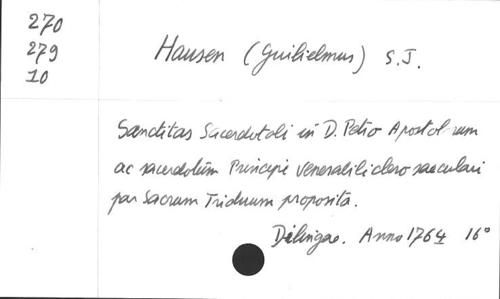 270
279
10
Hausen (Guilielmus) S.J.
Sanctitas Sacerdotali in D. Petro Apostolorum
ac sacerdotum Principe venerabili clero saeculari
per Sacrum Triduum proposita.
Dilingae. Anno 1764 16°